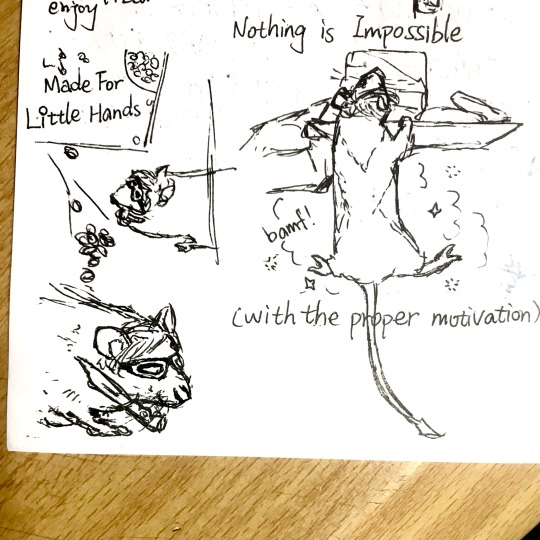 enjoy
Made For
Little Hands
Nothing is Impossible
bamf!
(with the proper motivation)